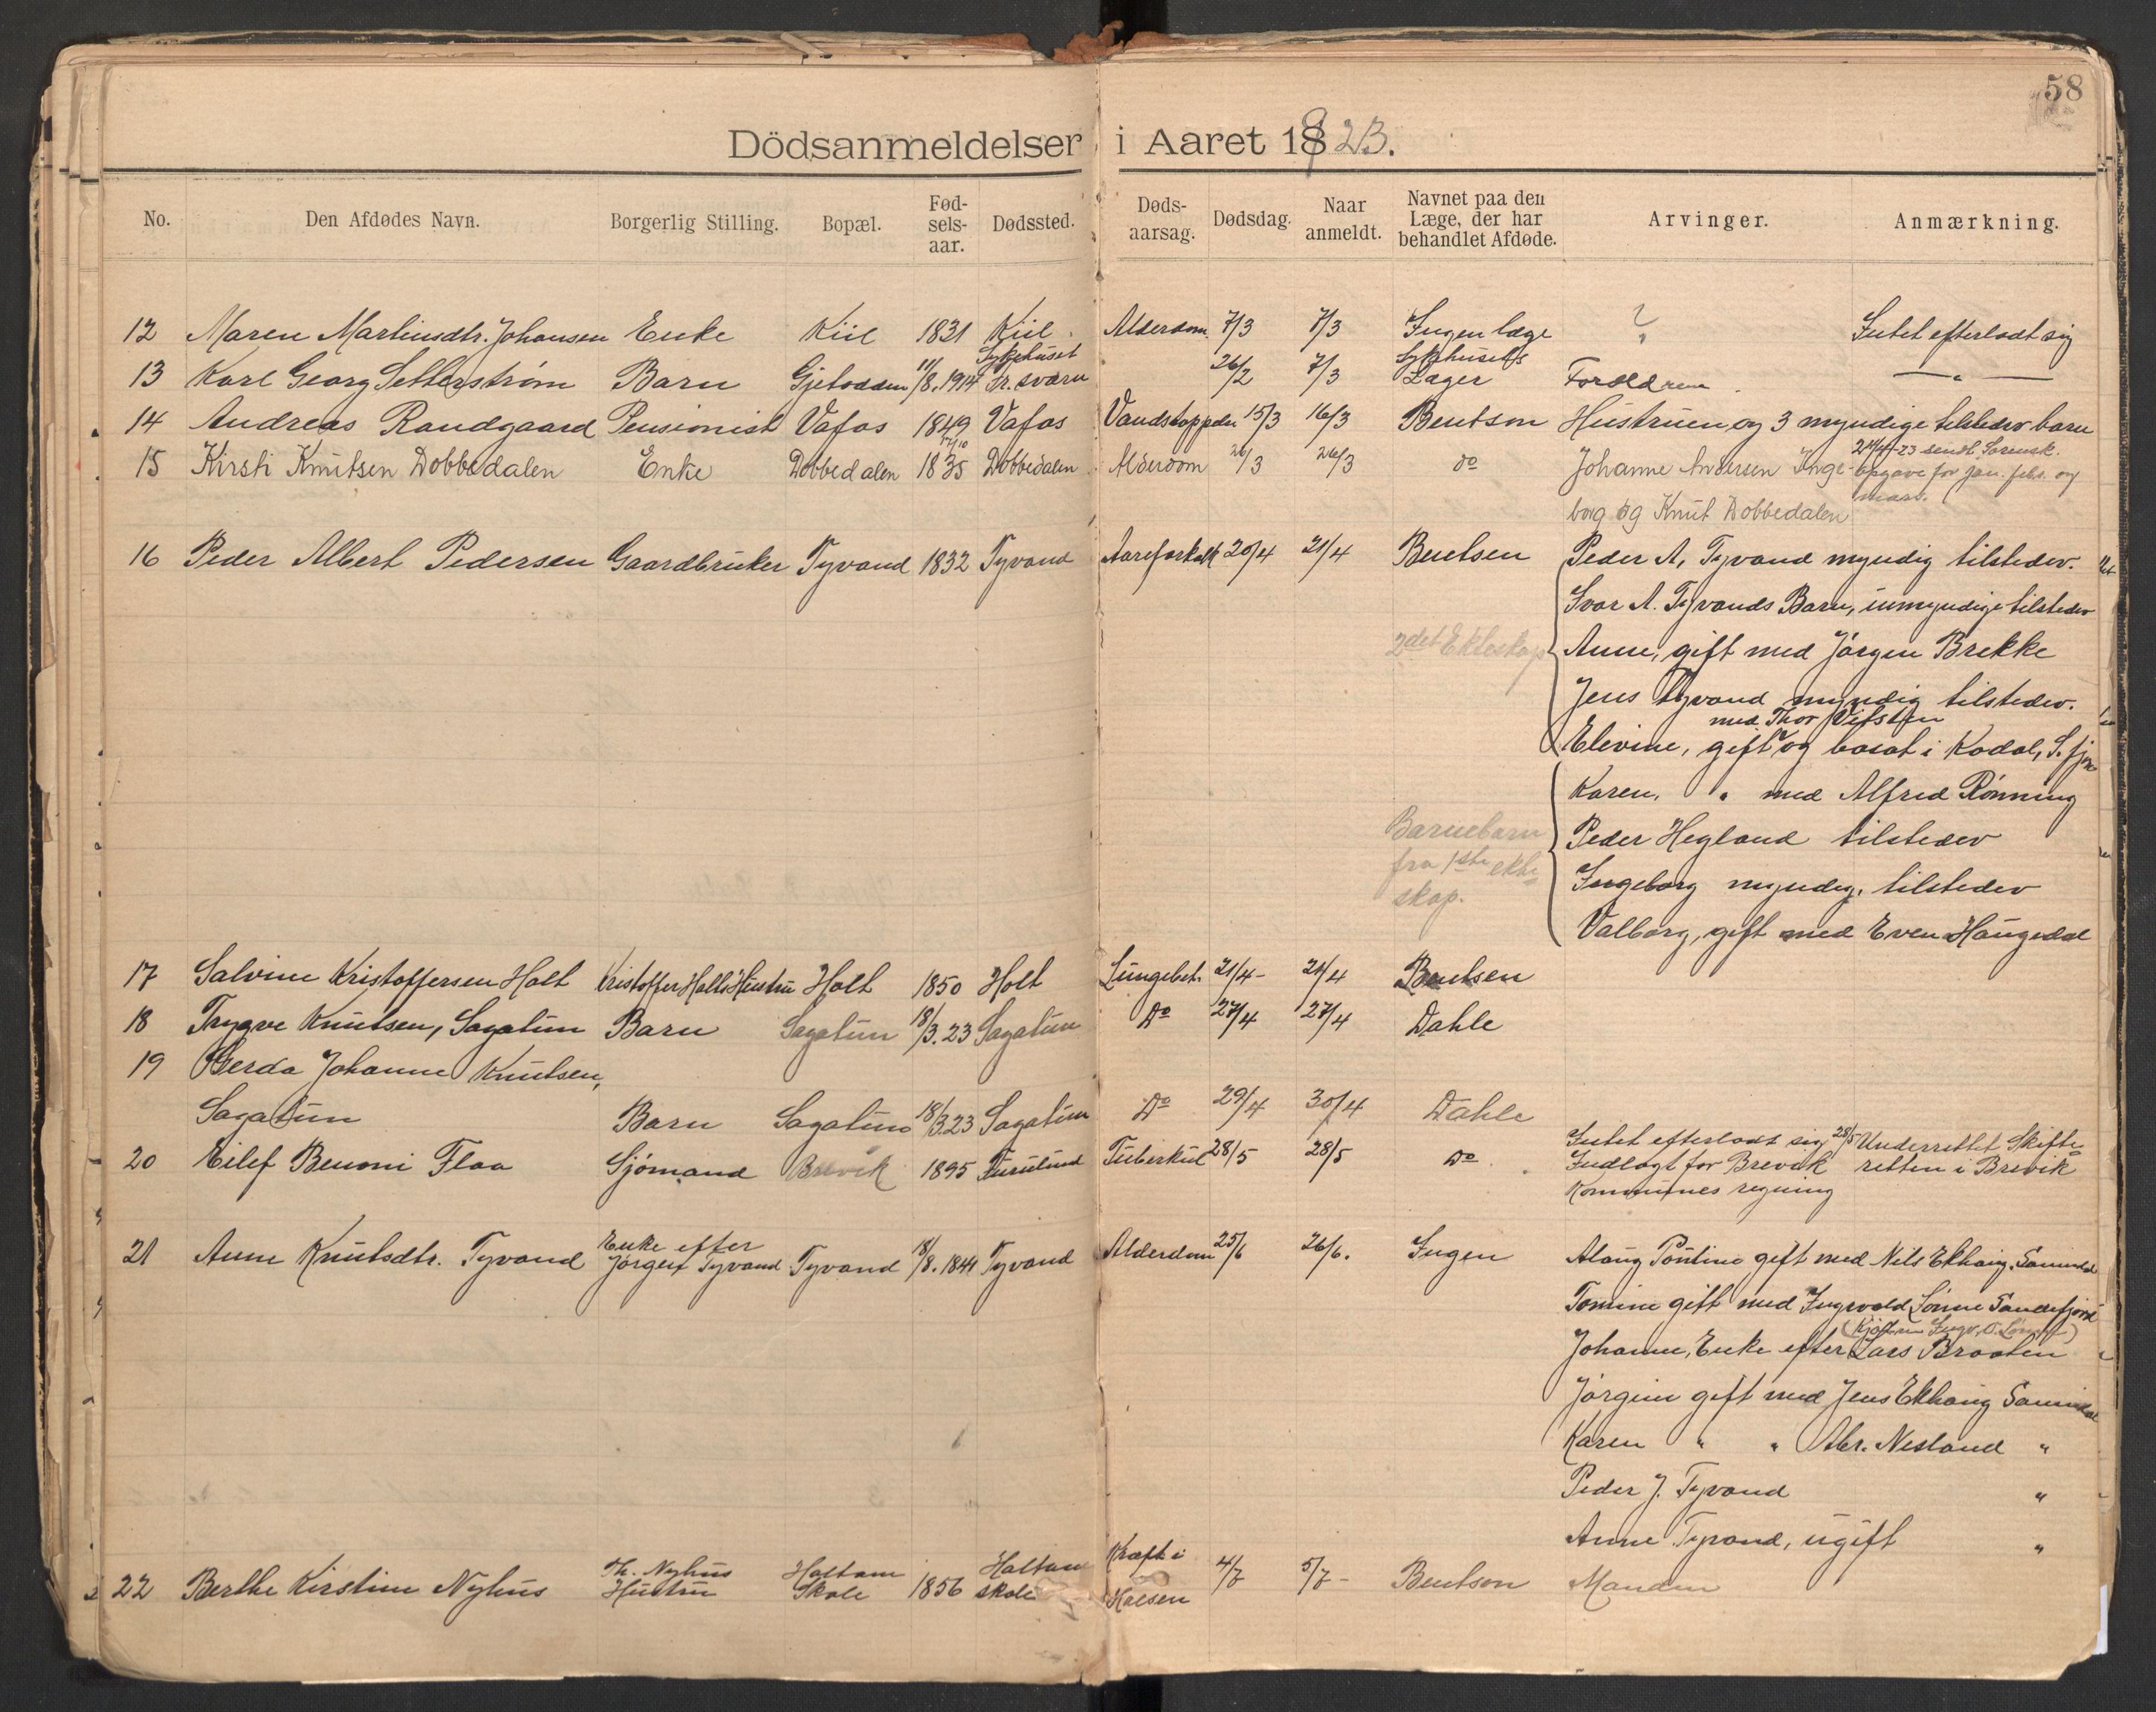 58
Dödsanmeldelser i Aaret 1923.
No. Den Afdødes Navn. Borgerlig Stilling. Bopæl. Fød-sels-aar. Dødssted. Døds-aarsag. Dødsdag. Naar anmeldt. Navnet paa den Læge, der har behandlet Afdøde. Arvinger. Anmærkning.
12 Maren Martinsdtr. Johansen Enke Kiil 1831 Kiil Alderdom 7/3 7/3 Ingen læge ? Intet efterladt sig
13 Karl Georg Setterstrøm Barn Gjetodden 11/8.1914 Sykehuset 26/2 7/3 Sykehusets Læger Forældrene — " —
14 Andreas Randgaard Pensionist Vafos 1849 Vafos 15/3 16/3 Bentson Hustruen og 3 myndige tilstedev. barn
15 Kirsti Knutsen Dobbedalen Enke Dobbedalen 17/10 1835 Dobbedalen Alderdom 26/3 26/3 do Johanne Andersen Inge- 24/4-23 sendt Sorensk.
opgave for jan. febr. og
borg og Knut Dobbedalen mars.
16 Peder Albert Pedersen Gaardbruker Tyvand 1832 Tyvand Aareforkalk 20/4 21/4 Bentsen Peder A. Tyvand myndig tilstedev.
Ivar A. Tyvands Barn, umyndige tilstedev
2det Ekteskap Anne, gift med Jörgen Brekke
Jens Tyvand myndig tilstedev.
med Thor Vefsten
Elevine, gift og bosat i Kodal, S.fjor
Karen, " med Alfred Rönning
Barnebarn Peder Hegland tilstedev
fra 1ste ekte Ingeborg myndig, tilstedev
skap. Valborg, gift med Even Haugedal
17 Salvine Kristoffersen Holt Kristoffer Holts Hustru Holt 1850 Holt Lungebet. 21/4- 24/4 Bentsen
18 Trygve Knutsen, Sagatun Barn Sagatun 18/3.23 Sagatun Do 27/4 27/4 Dahle
19 Gerda Johanne Knutsen,
Sagatun Barn Sagatun 18/3.23 Sagatun Do 29/4 30/4 Dahle
20 Eilef Benoni Flaa Sjömand Brevik 1895 Furulund Tuberkul 28/5 28/5 Do Intet efterladt sig 28/5 Underrettet Skifte
Indlagt for Brevik retten i Brevik
Kommunes regning
21 Anne Knutsdtr. Tyvand Enke efter Jörgen Tyvand Tyvand 18/8.1844 Tyvand Alderdom 25/6 26/6. Ingen gift med Nils Ekhaug,
Tomine gift med Ingvald Lönne Sandefjord
Johanne, Enke efter Lars Braaten
Jörgine gift med Jens Ekhaug
Karen " " Abr. Nesland "
Peder J. Tyvand "
Anne Tyvand, ugift "
22 Berthe Kirstine Nyhus Th. Nyhus Hustru Holtane Skole 1856 Holtane skole Kræft i Halsen 4/7 5/7- Bentson Manden